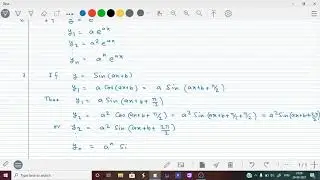 y = e
y₁ = a e^{ax}
y₂ = a² e^{ax}
yₙ = aⁿ e^{ax}
If y = Sin (ax+b)
y₁ = a Cos(ax+b) = a Sin (ax+b+π/2)
Thus y₁ = a Sin (ax+b+π/2)
y₂ = a² Cos (ax+b+π/2) = a² Sin (ax+b+π/2+π/2) = a² Sin (ax+b+2π/2)
or y₂ = a² Sin (ax+b+2π/2)
yₙ = aⁿ Si